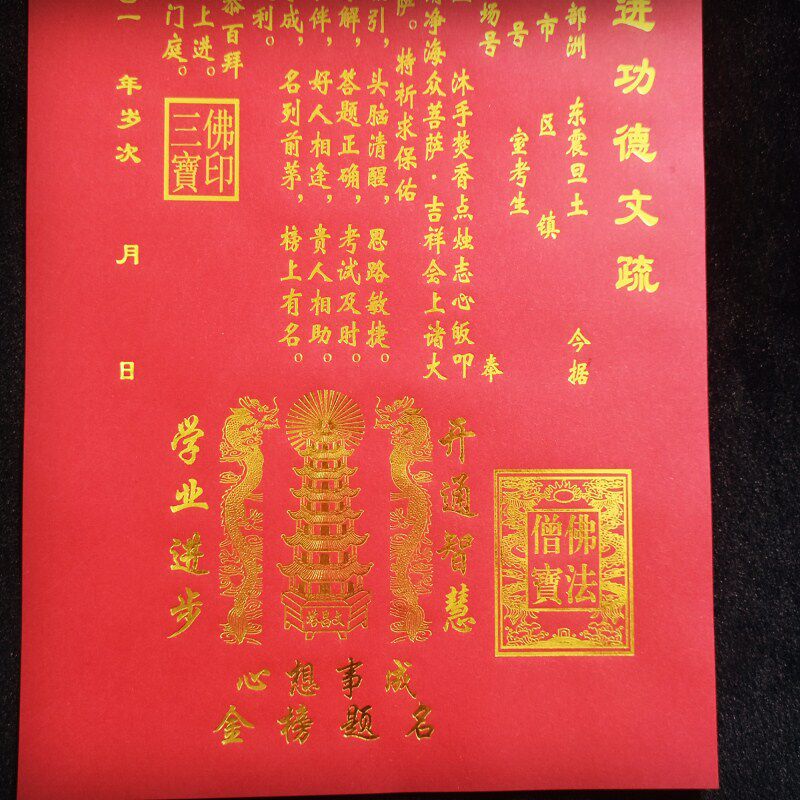 进功德文疏
部洲 东震旦土 今据
市 区 镇
号 室考生
场号 奉
沐手焚香点烛志心皈叩
清净海众菩萨·吉祥会上诸大
萨。特祈求保佑
引,头脑清醒,思路敏捷。
解,答题正确,考试及时。
伴,好人相逢,贵人相助。
成,名列前茅,榜上有名。
利。
恭百拜
上进。
门庭。
佛印
三寶
年岁次 月 日
开通智慧
文昌塔
学业进步
心想事成
金榜题名
佛法
僧寶